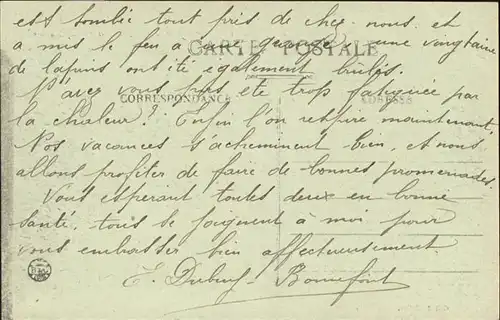 est tombée tout près de chez nous et
CARTE POSTALE
a mis le feu a une vingtaine
de lapins ont été également brûlés.
N'avez vous pas été trop fatiguée par
CORRESPONDANCE ADRESSE
la chaleur? Enfin l'on respire maintenant
Nos vacances s'acheminent bien, et nous
allons profiter de faire de bonnes promenades
Vous espérant toutes deux en bonne
santé, tous se joignent à moi pour
vous embrasser bien affectueusement.
E. Bonnefont